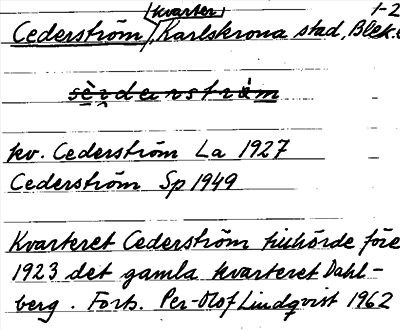 kvarter 1-2
Cederström, Karlskrona stad, Blek.
kv. Cederström La 1927
Cederström Sp 1949
Kvarteret Cederström tillhörde före
1923 det gamla kvarteret Dahl-
berg. Forts. Per-Olof Lindqvist 1962